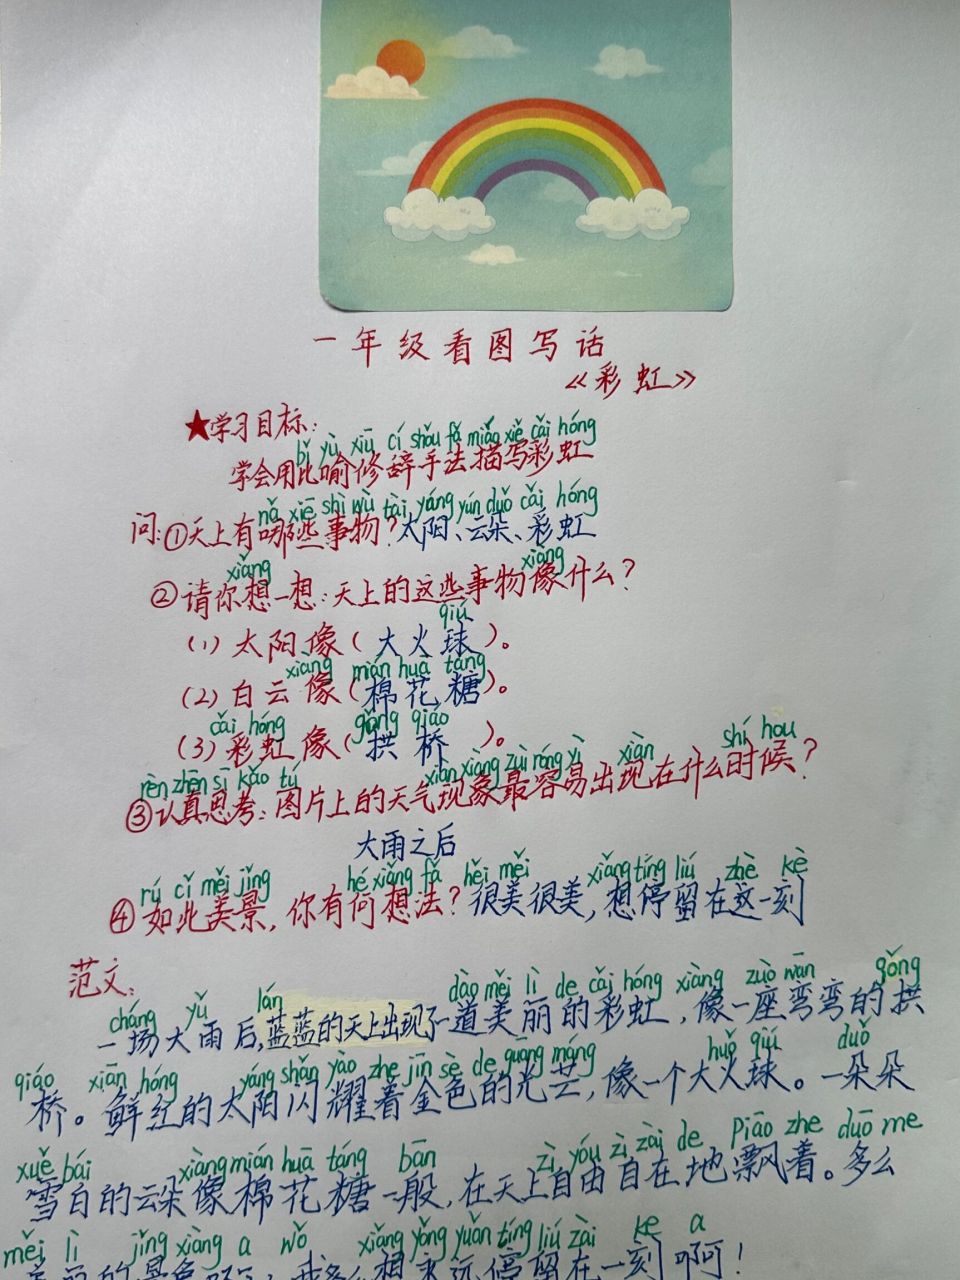 一年级看图写话
《彩虹》
★学习目标:
bǐ yù xiū cí shǒu fǎ miáo xiě cǎi hóng
学会用比喻修辞手法描写彩虹
nǎ xiē shì wù tài yáng yún duǒ cǎi hóng
问:①天上有哪些事物?太阳、云朵、彩虹
xiǎng xiàng
②请你想一想:天上的这些事物像什么?
qiú
(1)太阳像(大火球)。
xiàng mián huā táng
(2)白云像(棉花糖)。
cǎi hóng gǒng qiáo
(3)彩虹像(拱桥)。
rèn zhēn sī kǎo tú xiàn xiàng zuì róng yì xiàn shí hou
③认真思考:图片上的天气现象最容易出现在什么时候?
大雨之后
rú cǐ měi jǐng hé xiǎng fǎ hěi měi xiǎng tíng liú zhè kè
④如此美景,你有何想法?很美很美,想停留在这一刻
范文:
cháng yǔ lán dào měi lì de cǎi hóng xiàng zuò wān gǒng
一场大雨后,蓝蓝的天上出现了一道美丽的彩虹,像一座弯弯的拱
qiáo xiān hóng yáng shǎn yào zhe jīn sè de guāng máng huǒ qiú duǒ
桥。鲜红的太阳闪耀着金色的光芒,像一个大火球。一朵朵
xuě bái xiàng mián huā táng bān zì yóu zì zài de piāo zhe duō me
雪白的云朵像棉花糖一般,在天上自由自在地飘着。多么
měi lì jǐng xiàng a wǒ xiǎng yǒng yuǎn tíng liú zài kè a
美丽的景色啊!我多么想永远停留在一刻啊!